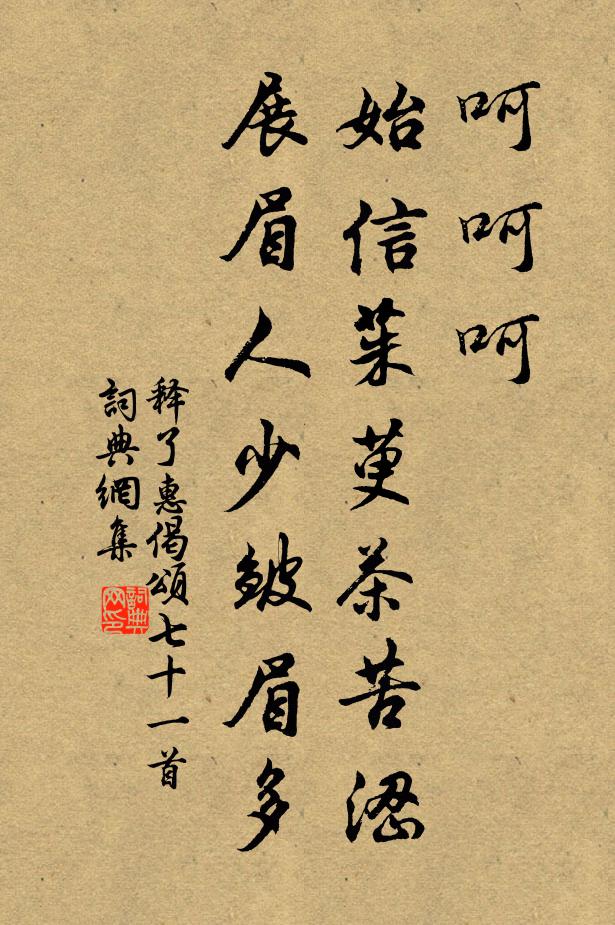 呵呵呵
始信茱萸茶苦澀
展眉人少皺眉多
释了惠偈頌七十一首
詞典網集
詞典
网印